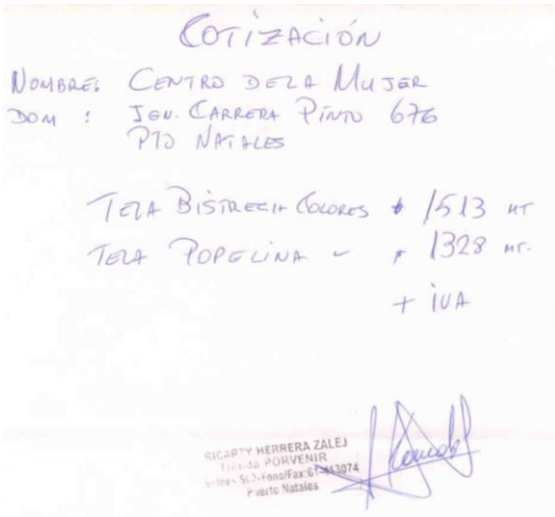 COTIZACIÓN
NOMBRE: CENTRO DE LA MUJER
DOM : IGN. CARRERA PINTO 676
PTO NATALES
TELA BISTRECH COLORES $ 1513 MT
TELA POPELINA $ 1328 MT.
+ IVA
RICARTY HERRERA ZALEJ
Tienda PORVENIR
Fono/Fax:61-413074
Puerto Natales